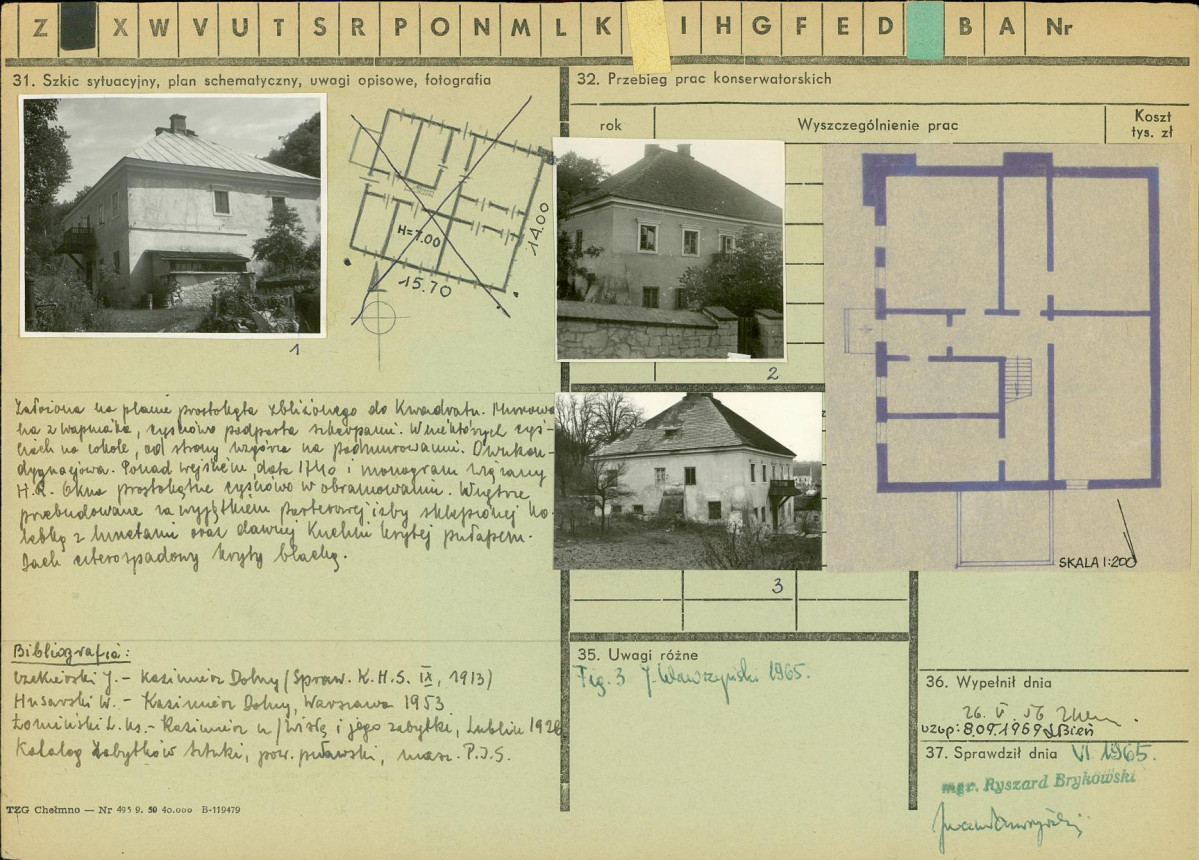 Z X W V U T S R P O N M L K I H G F E D B A Nr
31. Szkic sytuacyjny, plan schematyczny, uwagi opisowe, fotografia
32. Przebieg prac konserwatorskich
rok
Wyszczególnienie prac
Koszt
tys. zł
H=7.00
14.00
15.70
1
2
3
SKALA 1:200
Założona na planie prostokąta zbliżonego do kwadratu. Murowa
na z wapniaka, częściowo podparta szkarpami. W niektórych czę-
ściach na cokole, od strony wzgórza na podmurowaniu. Dwukon-
dygnacjowa. Ponad wejściem, data 1740 i monogram wiązany
H.R. Okna prostokątne częściowo w obramowaniu. Wnętrze
przebudowane za wyjątkiem parterowej izby sklepionej ko-
lebką z lunetami oraz dawnej kuchni krytej pułapem.
Dach czterospadowy kryty blachą.
Bibliografia:
J. - Kazimierz Dolny (Spraw. K.H.S. IX, 1913)
Husarski W. - Kazimierz Dolny, Warszawa 1953
- Kazimierz n/Wisłą i jego zabytki, Lublin
Katalog Zabytków Sztuki, pow. puławski, masz. P.I.S.
TZG Chełmno — Nr 495 9. 59 40.000 B-119479
35. Uwagi różne
Fig. 3 J. Wawrzyński 1965.
36. Wypełnił dnia
26. V. 56
uzup: 8.09.1969
37. Sprawdził dnia VI. 1965.
mgr. Ryszard Brykowski